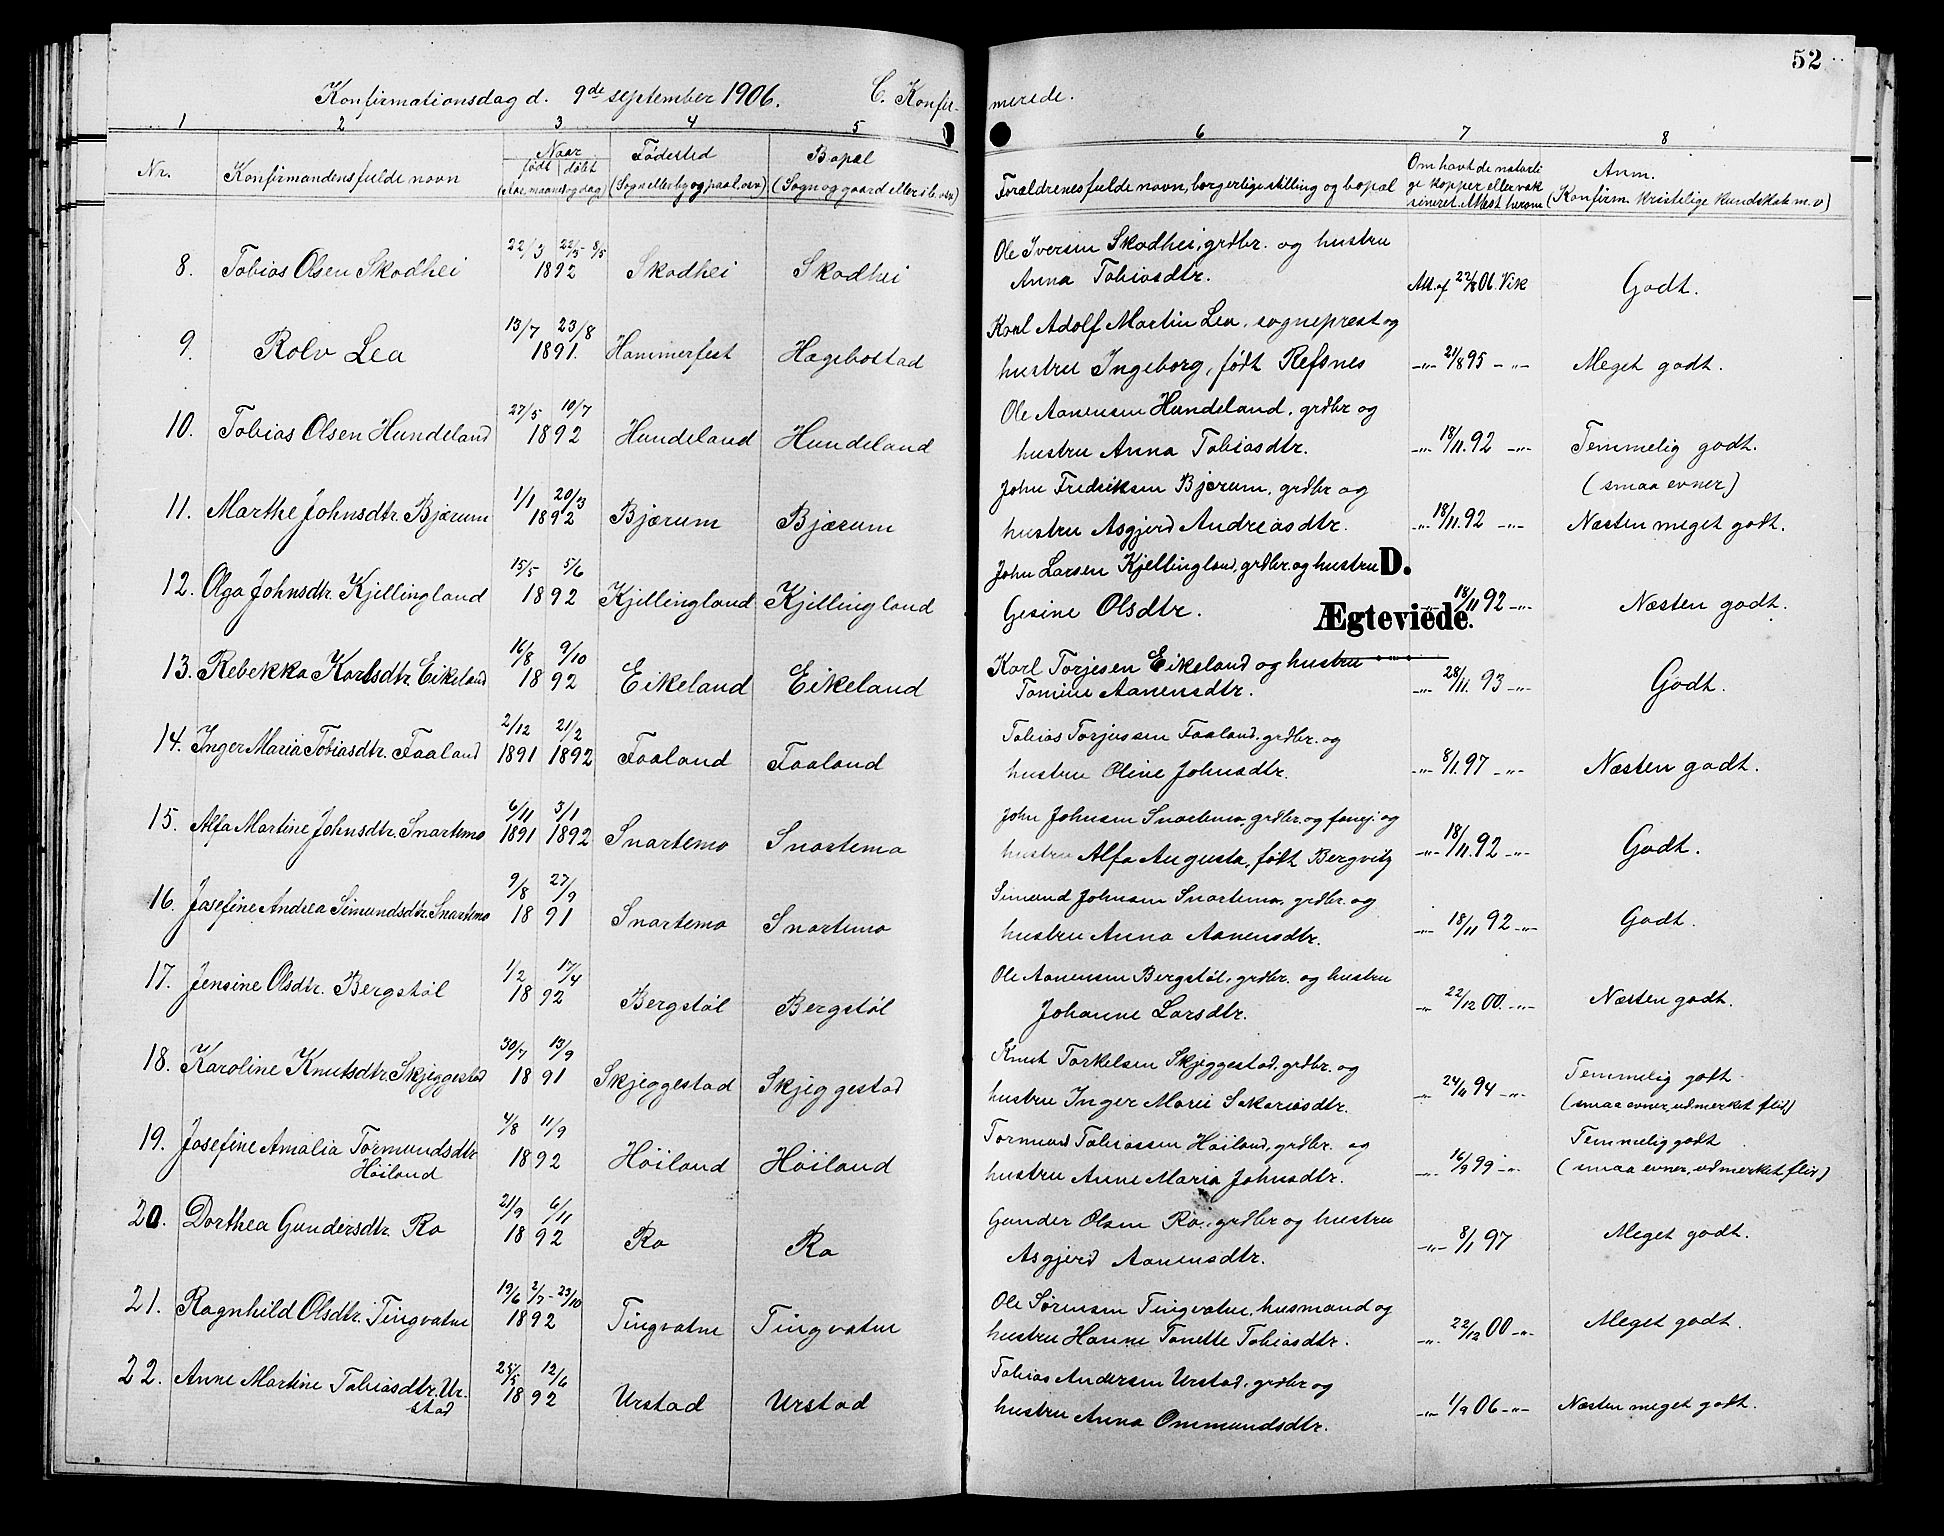 52
Konfirmationsdag d. 9de september 1906. C. Konfir-
merede.
1 2 3 4 5
6 7 8
Nr. Konfirmandens fulde navn Naar født døbt (Aar, maaned og dag) Fødested (Sogn eller by og paa l. osv) Bopæl (Sogn og gaard eller i b. osv)
Forældrenes fulde navn, borgerlige stilling og bopæl Om havt de naturlige kopper, eller vaksineret. Attest herom Anm. (Konfirm. kristelige kundskab m. v)
8. Tobias Olsen Skodhei 22/3 22/5 8/5 1892 Skodhei Skodhei
Ole Iversen Skodhei, grdbr. og hustru
Anna Tobiasdtr. Att. af 22/8 06. Vik Godt.
9. Rolv Lea 13/7 23/8 1891. Hammerfest Hægebostad
Karl Adolf Martin Lea, sogneprest og
hustru Ingeborg, født Refsnes -"- 21/8 95 -"- Meget godt.
10. Tobias Olsen Hundeland 27/5 10/7 1892 Hundeland Hundeland
Ole Aanensen Hundeland, grdbr og
hustru Anna Tobiasdtr. -"- 18/11. 92 -"- Temmelig godt.
(smaa evner)
11. Marthe Johnsdtr. Bjærum 1/1 20/3 1892 Bjærum Bjærum
John Fredriksen Bjærum, grdbr og
hustru Asgjerd Andreasdtr. -"- 18/11. 92 -"- Næsten meget godt.
12. Olga Johnsdtr. Kjellingland 15/5 5/6 1892 Kjellingland Kjellingland
John Larsen Kjellingland, grdbr og hustru D.
Gesine Olsdtr. 18/11 92 -"- Næsten godt.
Ægteviede.
13. Rebekka Karlsdtr. Eikeland 16/8 9/10 1892 Eikeland Eikeland
Karl Torjesen Eikeland og hustru
Tomine Aanensdtr. -"- 28/11. 93 -"- Godt.
14. Inger Maria Tobiasdtr. Faaland 2/12 21/2 1891 1892 Faaland Faaland
Tobias Torjussen Faaland, grdbr. og
hustru Oline Johnsdtr. -"- 8/1. 97 -"- Næsten godt.
15. Alfa Martine Johnsdtr. Snartemo 6/11 3/1 1891 1892 Snartemo Snartemo
John Johnsen Snartemo, grdbr. og og
hustru Alfa Augusta, født Bergvitz -"- 18/11. 92 -"- Godt.
16. Josefine Andrea Simundsdtr. Snartemo 9/8 27/9 1891 Snartemo Snartemo
Simund Johnsen Snartemo, grdbr. og
hustru Anna Aanensdtr. -"- 18/11 92 -"- Godt.
17. Jensine Olsdtr. Bergstøl 1/2 17/4 1892 Bergstøl Bergstøl
Ole Aanensen Bergstøl, grdbr. og hustru
Johanne Larsdtr. -"- 22/12 00. -"- Næsten godt.
18. Karoline Knutsdtr. Skjeggestad 30/7 13/9 1891 Skjeggestad Skjeggestad
Knut Torkelsen Skjeggestad, grdbr. og
hustru Inger Marie Sakariasdtr. -"- 24/11 94 -"- Temmelig godt
(smaa evner, udmerket flid)
19. Josefine Amalia Tormundsdtr. Høiland 4/8 11/9 1892 Høiland Høiland
Tormund Tobiassen Høiland, grdbr. og
hustru Anne Maria Johnsdtr. -"- 16/9 99 -"- Temmelig godt
(smaa evner, udmerket flid)
20. Dorthea Gundersdtr. Ro 21/9 6/11 1892 Ro Ro
Gunder Olsen Ro, grdbr og hustru
Asgjerd Aanensdtr. -"- 8/1 97 Meget godt.
21. Ragnhild Olsdtr. Tingvatne 19/6 2/7-23/10 1892 Tingvatne Tingvatne
Ole Sørensen Tingvatne, husmand og
hustru Hanne Tonette Tobiasdtr. -"- 22/12 00 -"- Meget godt.
22. Anne Martine Tobiasdtr. Urstad 25/5 12/6 1892 Urstad Urstad
Tobias Andersen Urstad, grdbr og
hustru Anna Ommundsdtr. -"- 1/9 06 -"- Næsten meget godt.